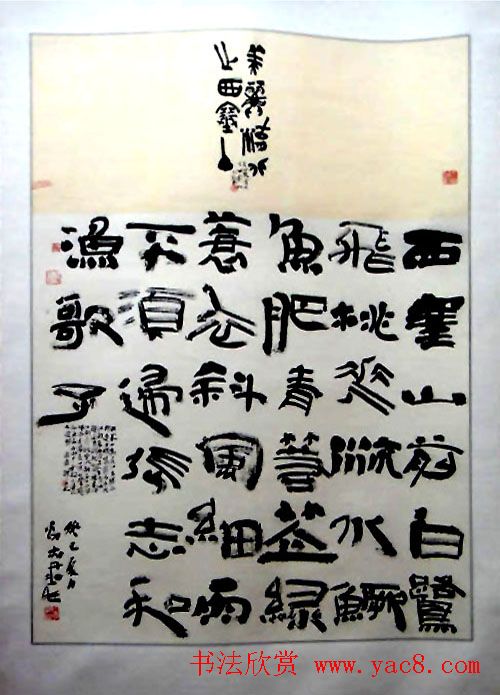 美麗
之西塞山
西塞山前白鷺
飛桃花流水鱖
魚肥青箬笠緑
蓑衣斜風細雨
不須歸張志和
漁歌子
癸巳春月
书法欣赏 www.yac8.com